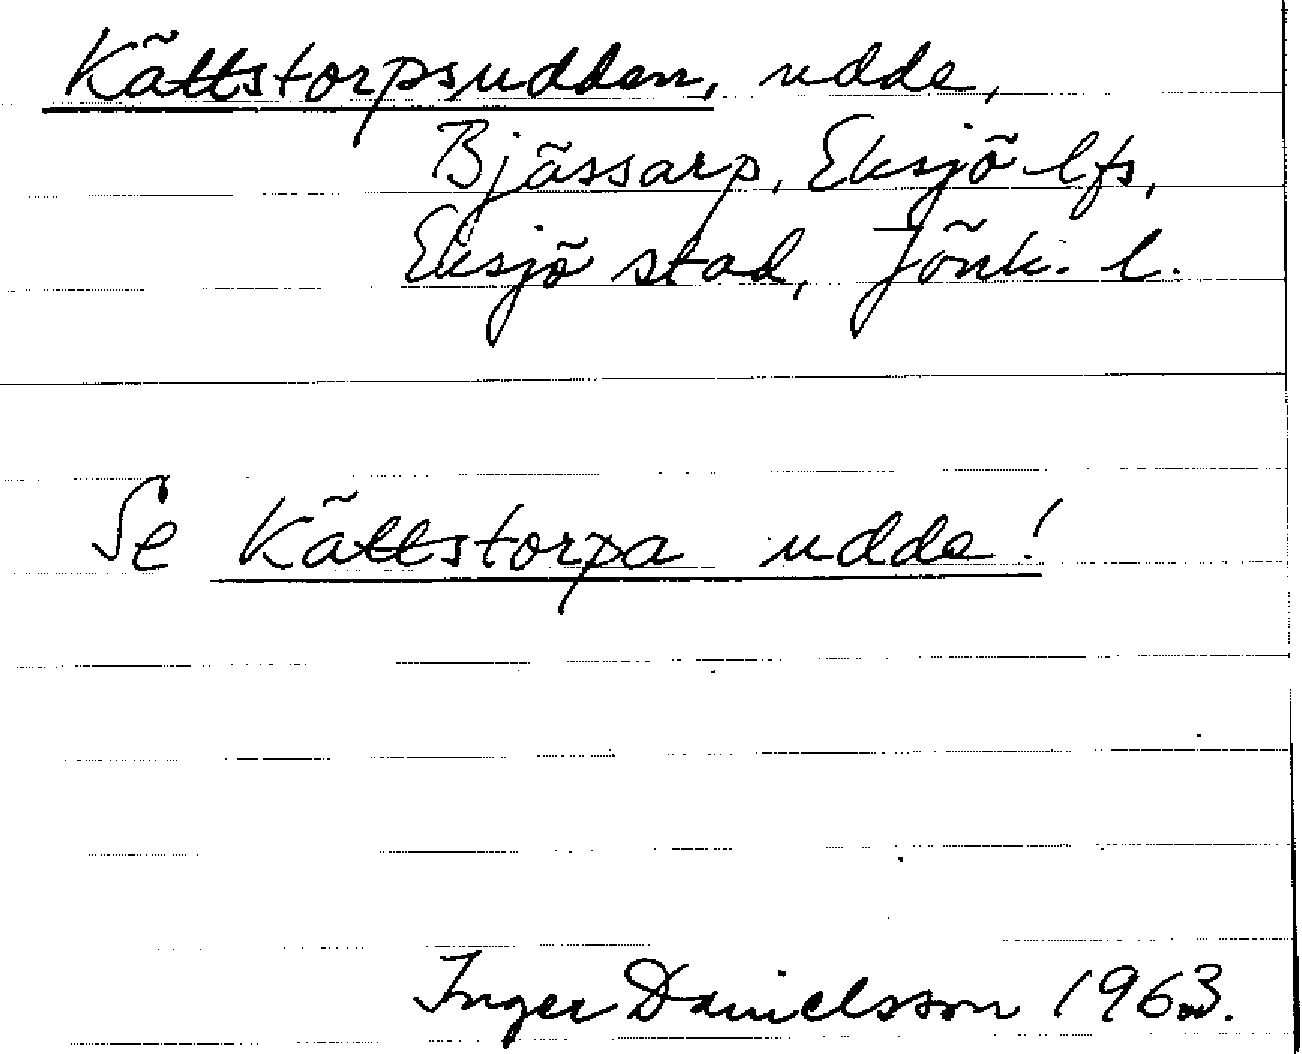 Kättstorpsudden, udde,
Bjässarp, Eksjö lfs,
Eksjö stad, Jönk. l.
Se Kättstorpa udde!
Inger Danielsson 1963.